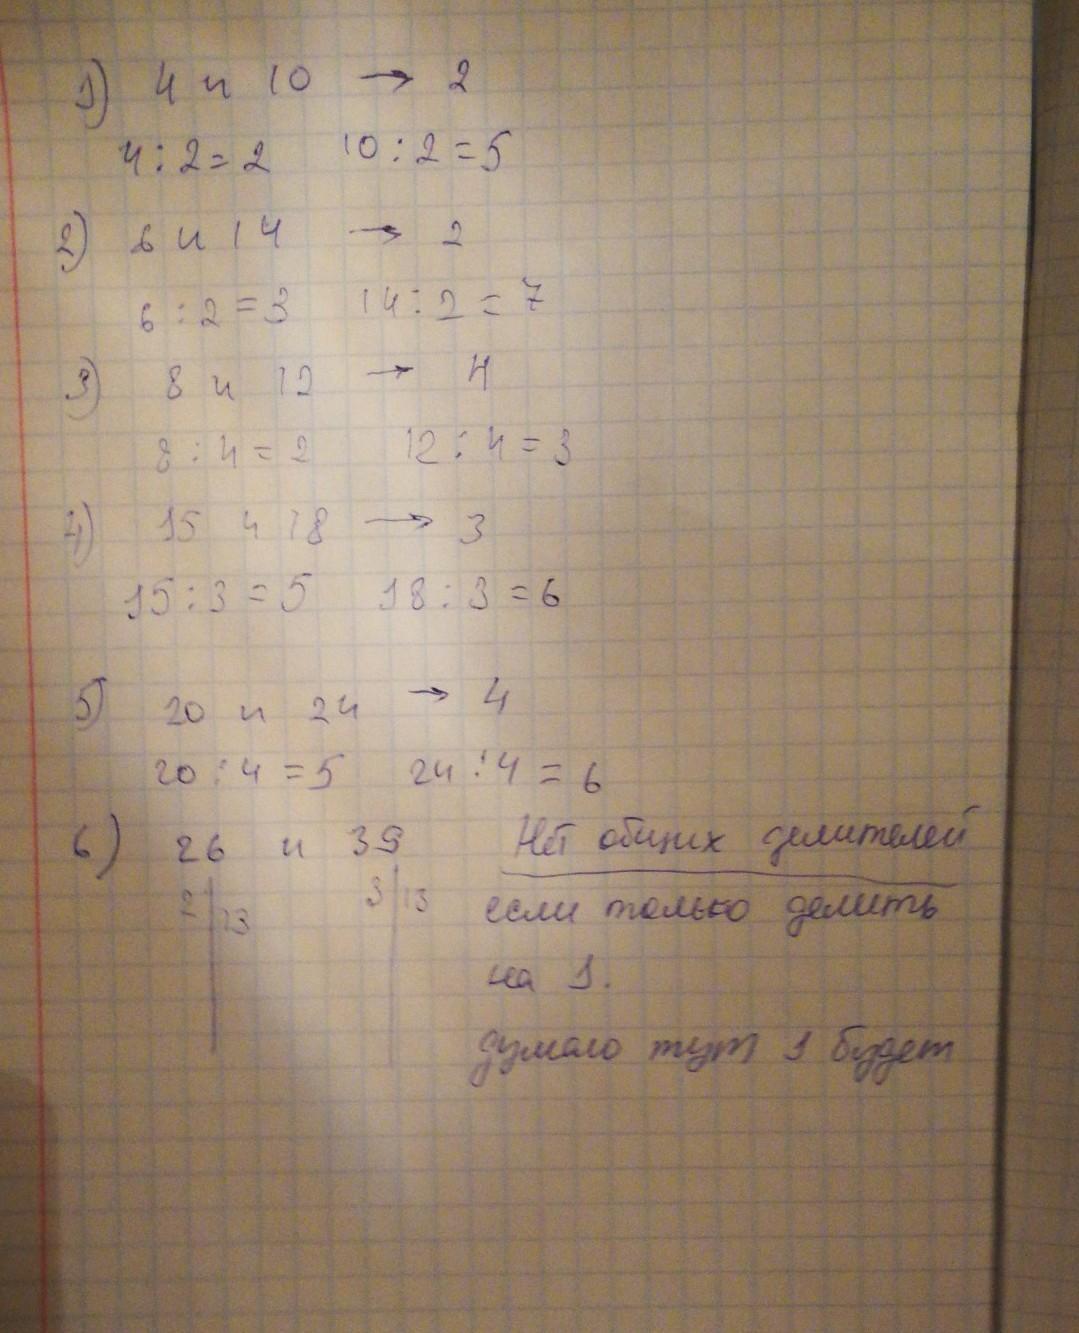 1) 4 и 10 → 2
4 : 2 = 2 10 : 2 = 5
2) 6 и 14 → 2
6 : 2 = 3 14 : 2 = 7
3) 8 и 12 → 4
8 : 4 = 2 12 : 4 = 3
4) 15 и 18 → 3
15 : 3 = 5 18 : 3 = 6
5) 20 и 24 → 4
20 : 4 = 5 24 : 4 = 6
6) 26 и 39 Нет общих делителей
2 | 13 3 | 13 если только делить
на 1.
думаю тут 1 будет